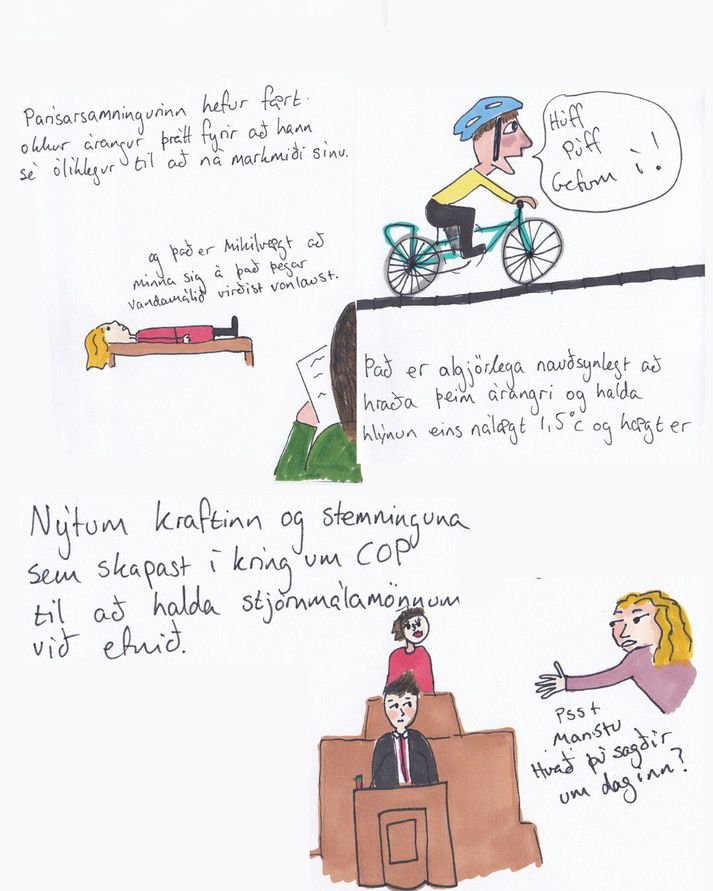 Parísarsamningurinn hefur fært
okkur árangur þrátt fyrir að hann
sé ólíklegur til að ná markmiði sínu.
og það er mikilvægt að
minna sig á það þegar
vandamálið virðist vonlaust.
Húff
Púff
Gefum í!
Það er algjörlega nauðsynlegt að
hraða þeim árangri og halda
hlýnun eins nálægt 1,5°c og hægt er
Nýtum kraftinn og stemninguna
sem skapast í kring um COP
til að halda stjórnmálamönnum
við efnið.
Psst
Manstu
Hvað þú sagðir
um daginn?